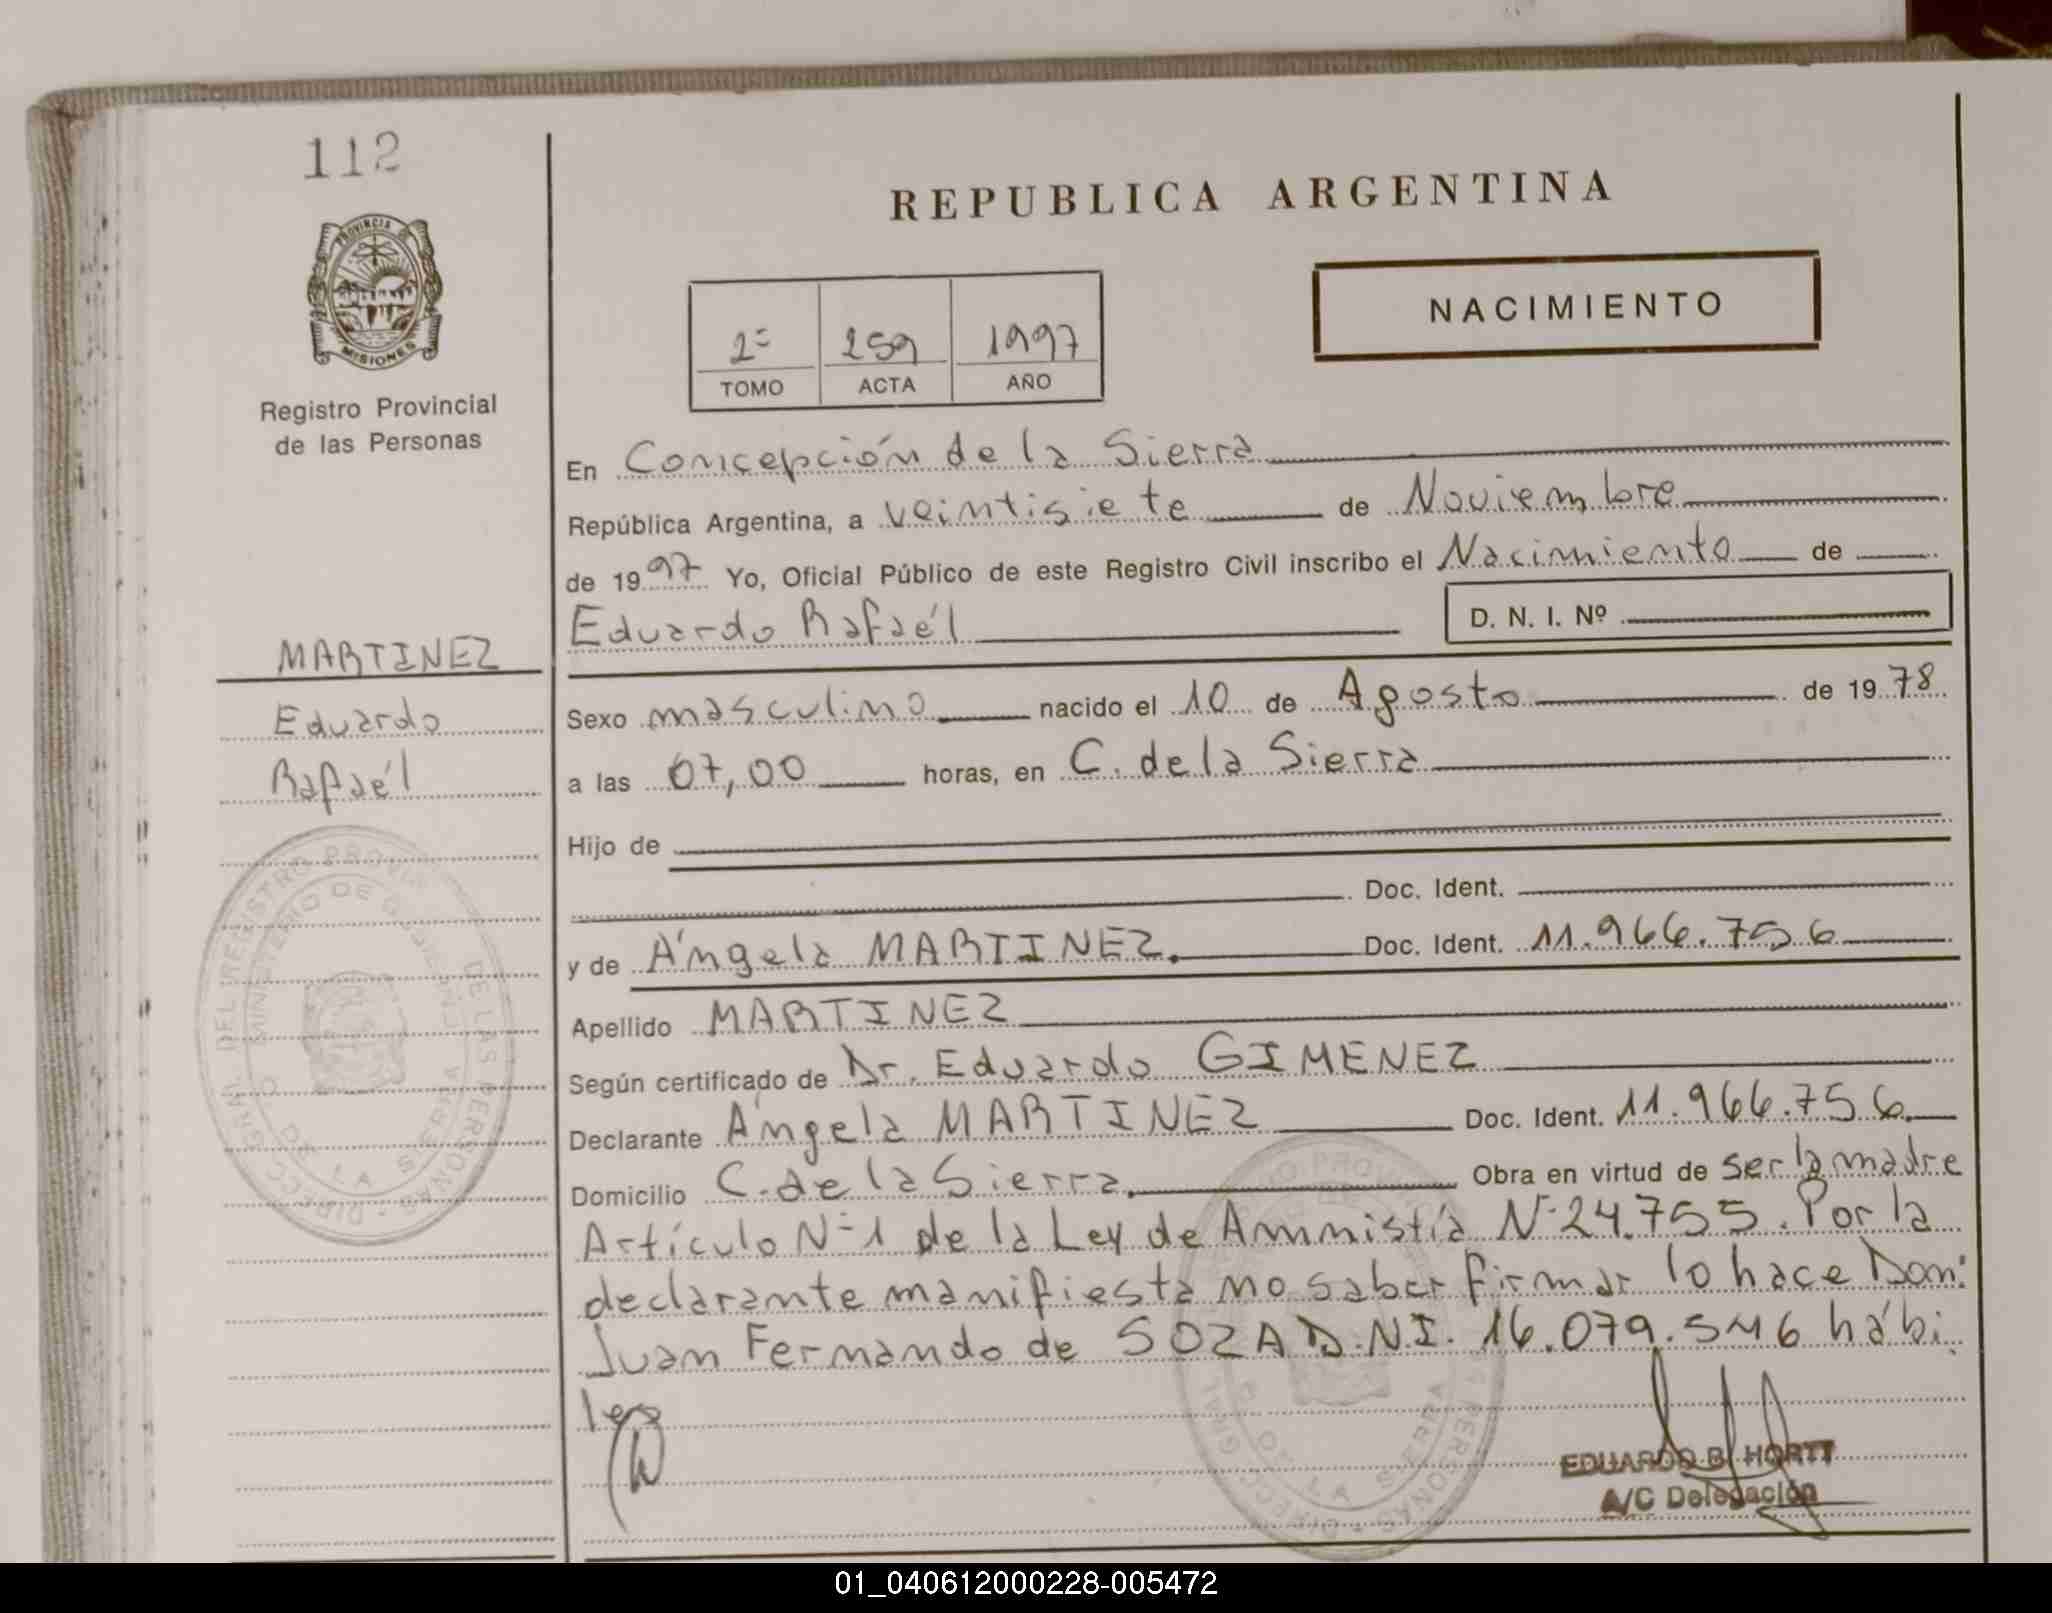 112
REPUBLICA ARGENTINA
PROVINCIA DE
MISIONES
NACIMIENTO
2º 259 1997
TOMO ACTA AÑO
Registro Provincial
de las Personas
En Concepción de la Sierra
República Argentina, a veintisiete de Noviembre
de 1997 Yo, Oficial Público de este Registro Civil inscribo el Nacimiento de
Eduardo Rafaél D. N. I. Nº
MARTINEZ
Eduardo
Rafaél
Sexo masculino nacido el 10 de Agosto de 1978
a las 07,00 horas, en C. de la Sierra
Hijo de
Doc. Ident.
y de Ángela MARTINEZ. Doc. Ident. 11.966.756
Apellido MARTINEZ
Según certificado de Dr. Eduardo GIMENEZ
Declarante Ángela MARTINEZ Doc. Ident. 11.966.756.
Domicilio C. de la Sierra. Obra en virtud de ser la madre
Artículo Nº 1 de la Ley de Amnistía Nº 24.755. Por la
declarante manifiesta no saber firmar lo hace Don:
Juan Fernando de SOZA D.N.I. 16.079.546 hábi
les
EDUARDO B. HORTT
A/C Delegación
DIRECC. GRAL. DEL REGISTRO PROVIN. DE LAS PERSONAS
MINISTERIO DE GOBIERNO
C. DE LA SIERRA
01_040612000228-005472